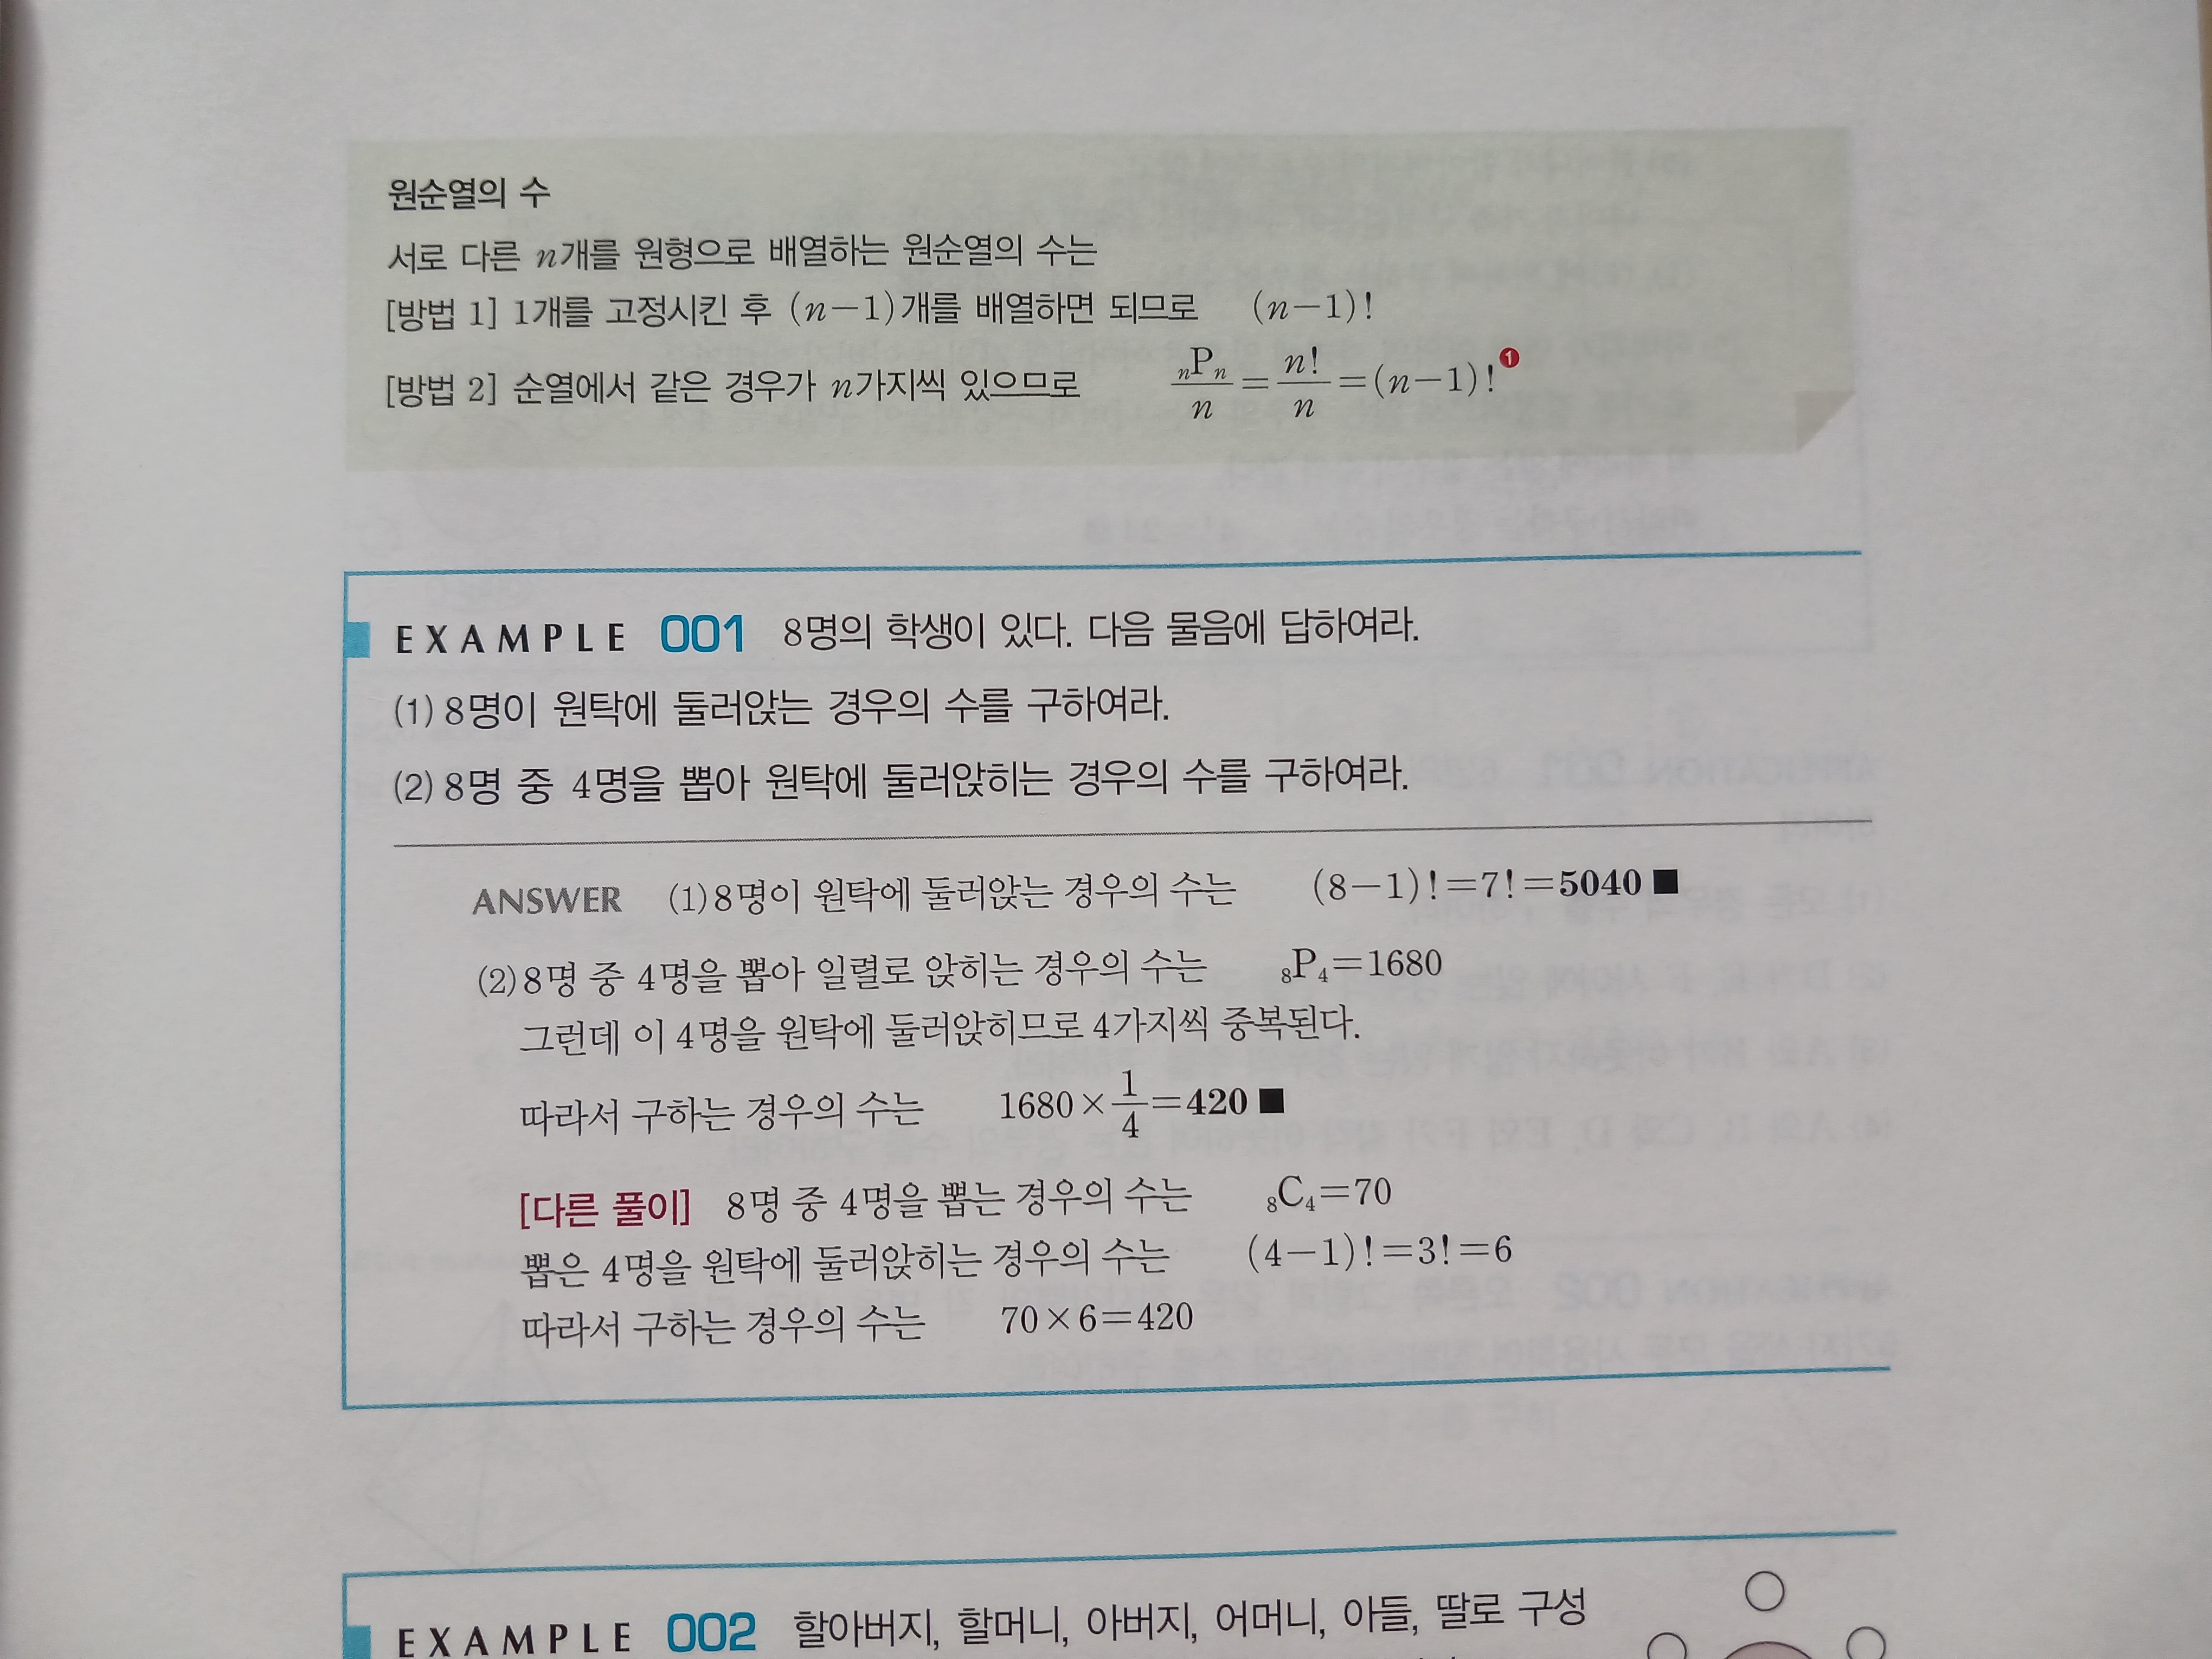 원순열의 수
서로 다른 n개를 원형으로 배열하는 원순열의 수는
[방법 1] 1개를 고정시킨 후 (n-1)개를 배열하면 되므로 (n-1)!
[방법 2] 순열에서 같은 경우가 n가지씩 있으므로 nPn/n = n!/n = (n-1)! ❶
EXAMPLE 001 8명의 학생이 있다. 다음 물음에 답하여라.
(1) 8명이 원탁에 둘러앉는 경우의 수를 구하여라.
(2) 8명 중 4명을 뽑아 원탁에 둘러앉히는 경우의 수를 구하여라.
ANSWER (1) 8명이 원탁에 둘러앉는 경우의 수는 (8-1)!=7!=5040 ■
(2) 8명 중 4명을 뽑아 일렬로 앉히는 경우의 수는 ₈P₄=1680
그런데 이 4명을 원탁에 둘러앉히므로 4가지씩 중복된다.
따라서 구하는 경우의 수는 1680×1/4=420 ■
[다른 풀이] 8명 중 4명을 뽑는 경우의 수는 ₈C₄=70
뽑은 4명을 원탁에 둘러앉히는 경우의 수는 (4-1)!=3!=6
따라서 구하는 경우의 수는 70×6=420
EXAMPLE 002 할아버지, 할머니, 아버지, 어머니, 아들, 딸로 구성